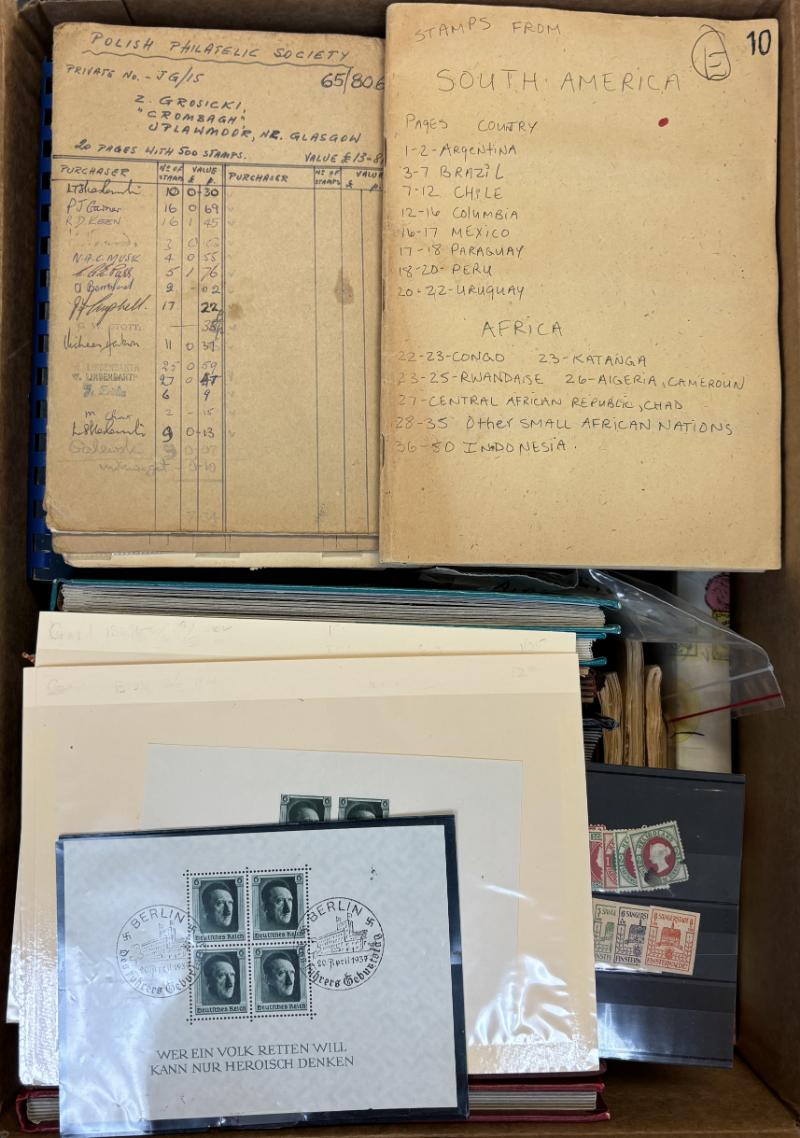 POLISH PHILATELIC SOCIETY
PRIVATE No. - JG/15 65/806
Z. GROSICKI,
"CROMBAGH"
UPLAWMOOR, NR. GLASGOW
20 PAGES WITH 500 STAMPS. VALUE £13-8
PURCHASER No OF STAMPS VALUE £ p. PURCHASER No OF STAMPS VALUE £ p.
10 0-30
PJ Garner 16 0 69
R D KEEN 16 1 45
3 0
N.A.C. MUSK 4 0 55
5 1 76
2 - 02
Campbell. 17 22
11 0 37
25 0 59
W. LINDENBARTH 27 0 47
6 9
2 - 15
9 0-13
STAMPS FROM E 10
SOUTH AMERICA
PAGES COUNTRY
1-2-ARGENTINA
3-7 BRAZIL
7-12 CHILE
12-16 COLUMBIA
16-17 MEXICO
17-18 PARAGUAY
18-20- PERU
20-22-URUGUAY
AFRICA
22-23-CONGO 23-KATANGA
23-25-RWANDAISE 26-AlGERIA, CAMEROUN
27-CENTRAL AFRICAN REPUBLIC, CHAD
28-35 Other SMALL AFRICAN NATIONS
36-50 INDONESIA.
6 6
6 6
BERLIN
20. April 1937
des Führers Geburtstag
Deutsches Reich Deutsches Reich
6 6
Deutsches Reich Deutsches Reich
BERLIN
20. April 1937
des Führers Geburtstag
WER EIN VOLK RETTEN WILL
KANN NUR HEROISCH DENKEN
HELGOLAND
SÄNGERSTADT
FINSTERWALDE